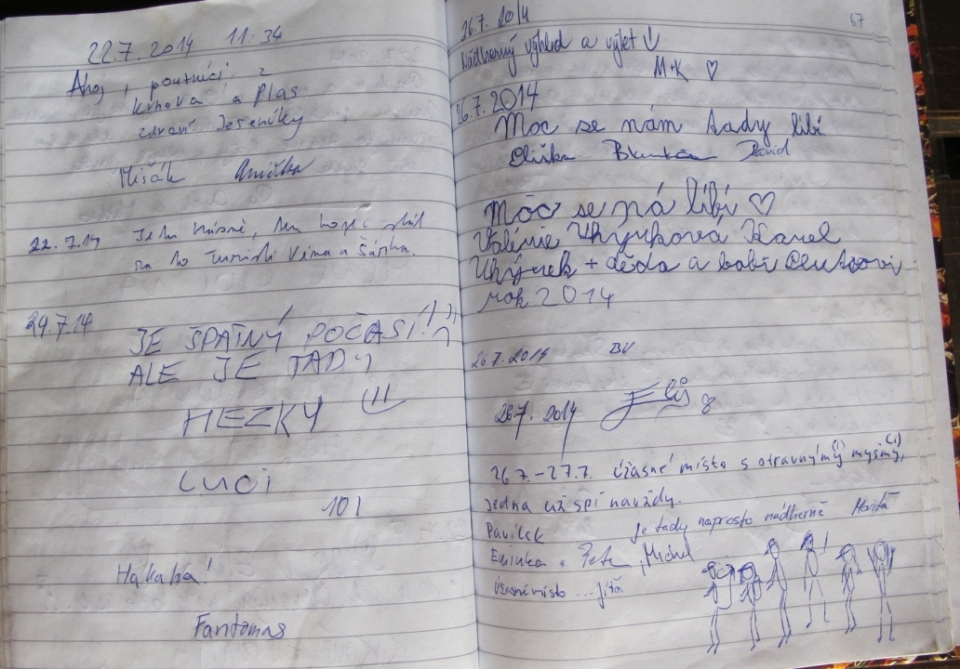 22.7.2014 11:34
Ahoj, poutníci z
Krnova a Plas
zdraví Jeseníky
Mišák Anička
22.7.14 Je tu krásně, ten kopec stál
za to Turisti Véna a Šárka.
29.7.14
JE ŠPATNÝ POČASÍ!!
ALE JE TADY
HEZKY
LUCI
10l
Hahaha!
Fantomas
67
26.7.2014
Nádherný výhled a výlet
M+K ♡
26.7.2014
Moc se nám tady líbí
Eliška David
Moc se ná líbí ♡
Valérie Karel
+ děda a babi
rok 2014
26.7.2014 BV
26.7.2014
26.7.-27.7. Úžasné místo s otravným(i) myšmy(i),
jedna už spí navždy.
Pavilsk Je tady naprosto nádherně
Eminka a Petr, Michal
Úžasné místo... Jířa